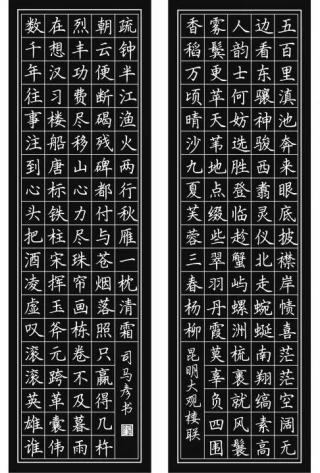 五百里滇池奔来眼底披襟岸帻喜茫茫空阔无
边看东骧神骏西翥灵仪北走蜿蜒南翔缟素高
人韵士何妨选胜登临趁蟹屿螺洲梳裹就风鬟
雾鬓更苹天苇地点缀些翠羽丹霞莫辜负四围
香稻万顷晴沙九夏芙蓉三春杨柳 昆明大观楼联
数千年往事注到心头把酒凌虚叹滚滚英雄谁
在想汉习楼船唐标铁柱宋挥玉斧元跨革囊伟
烈丰功费尽移山心力尽珠帘画栋卷不及暮雨
朝云便断碣残碑都付与苍烟落照只赢得几杵
疏钟半江渔火两行秋雁一枕清霜 司马彦书